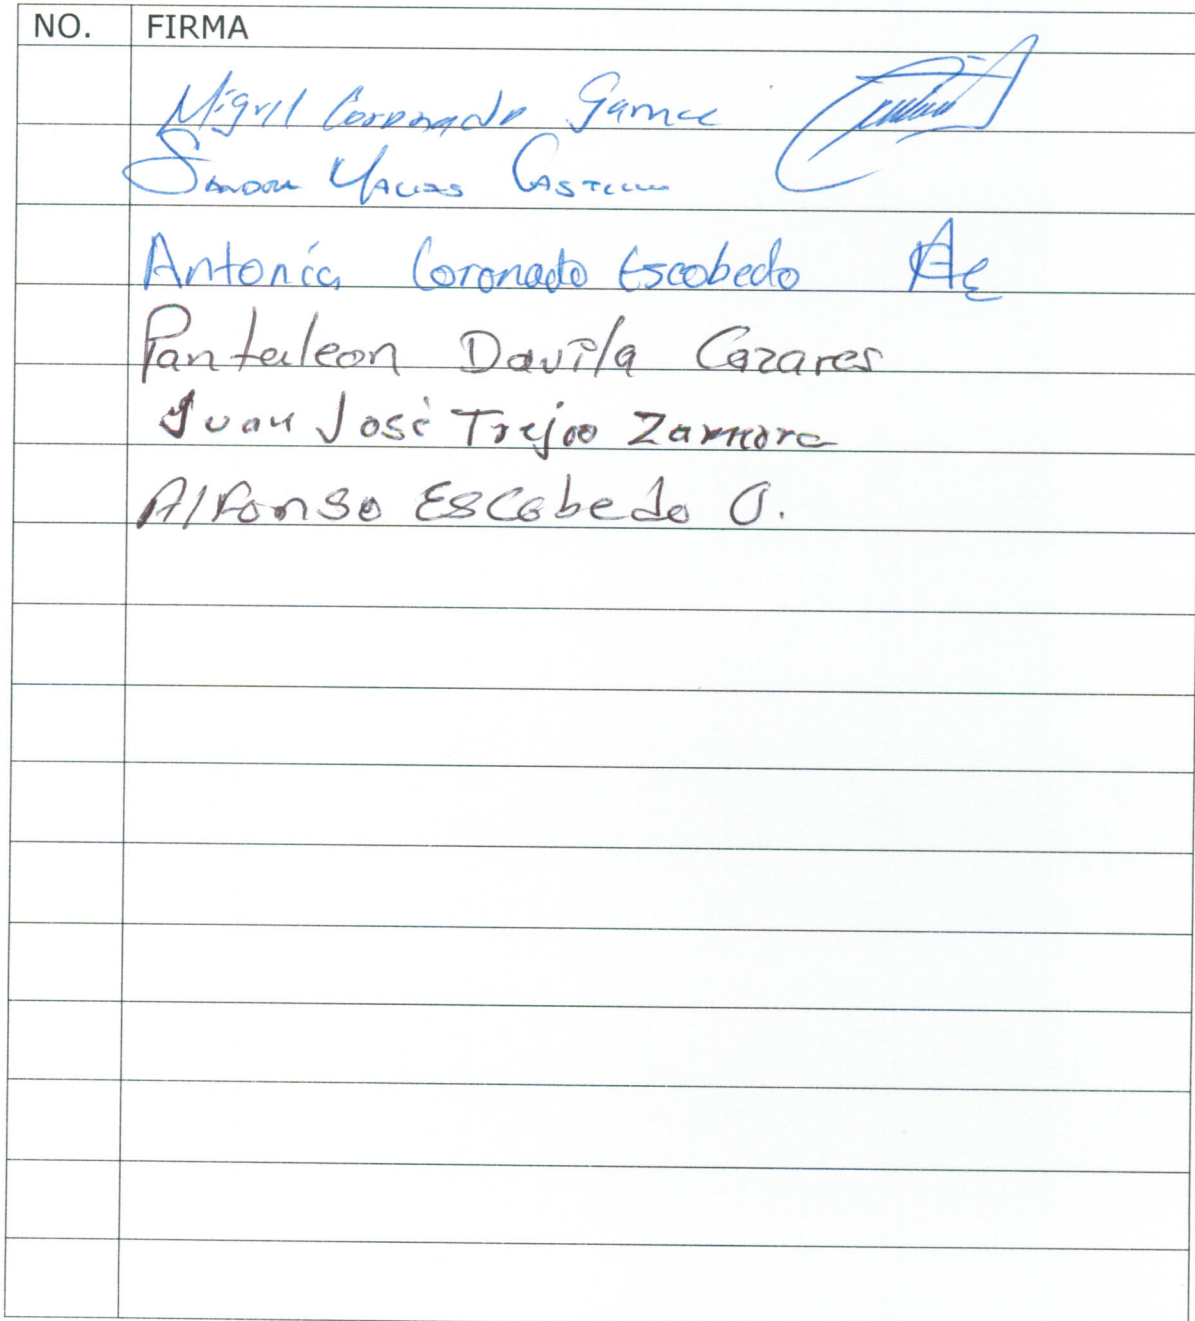 NO. FIRMA
Miguel Coronado Gamez
Sandra Macias Castillo
Antonia Coronado Escobedo
Pantaleon Davila Cazares
Juan José Trejoo Zamora
Alfonso Escobedo O.